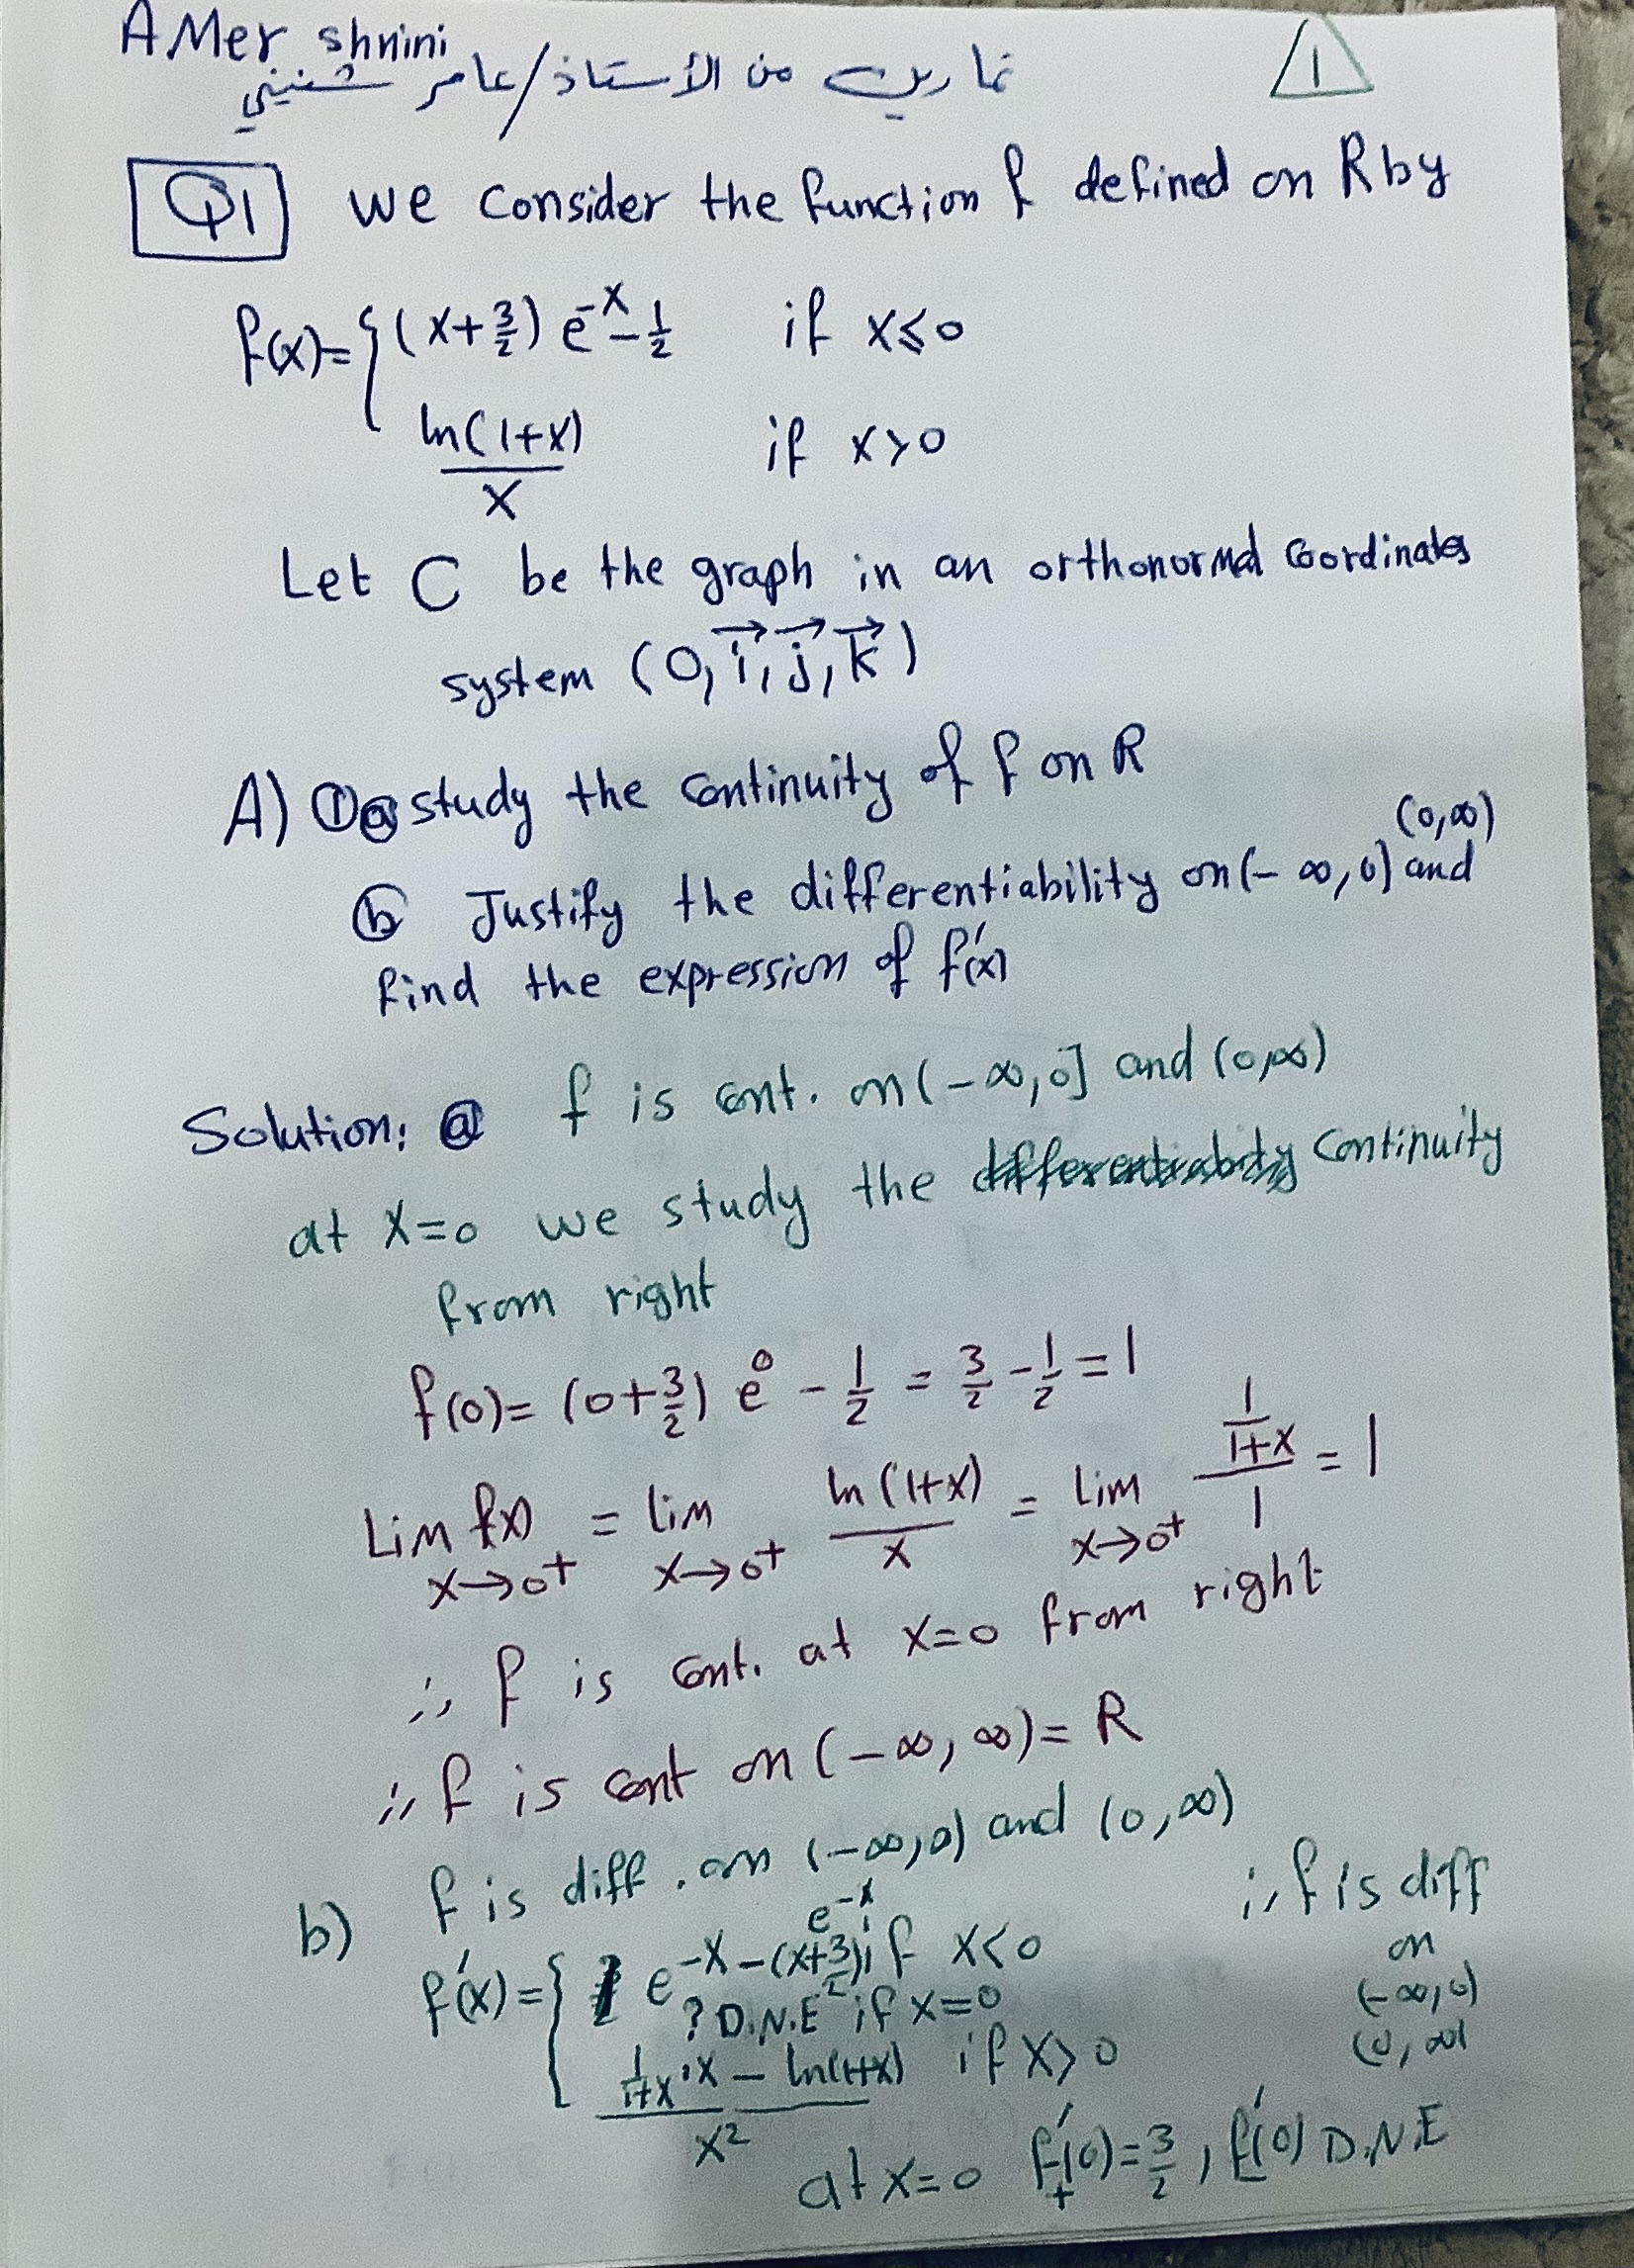 AMer shnini
تمارين من الأستاذ/عامر شنيني
1
Q1 we consider the function f defined on R by
f(x)= { (x+3/2) e^-x - 1/2 if x≤0
ln(1+x) / x if x>0
Let C be the graph in an orthonormal Coordinates
system (O, i→, j→, k→)
A) ① ⓐ study the continuity of f on R
ⓑ Justify the differentiability on (-∞,0) and (0,∞)
find the expression of f'(x)
Solution: ⓐ f is cont. on (-∞,0] and (0,∞)
at x=0 we study the continuity
from right
f(0)= (0+3/2) e^0 - 1/2 = 3/2 - 1/2 = 1
Lim f(x) x→0+ = lim x→0+ ln(1+x) / x = lim x→0+ (1/(1+x)) / 1 = 1
∴ f is cont. at x=0 from right
∴ f is cont on (-∞, ∞)= R
b) f is diff. on (-∞,0) and (0,∞)
f'(x)= { e^-x -(x+3/2) e^-x if x<0
? D.N.E if x=0
(1/(1+x) · x - ln(1+x)) / x² if x>0
∴ f is diff
on
(-∞,0)
(0,∞)
at x=0 f'+(0)=3/2, f'-(0) D.N.E